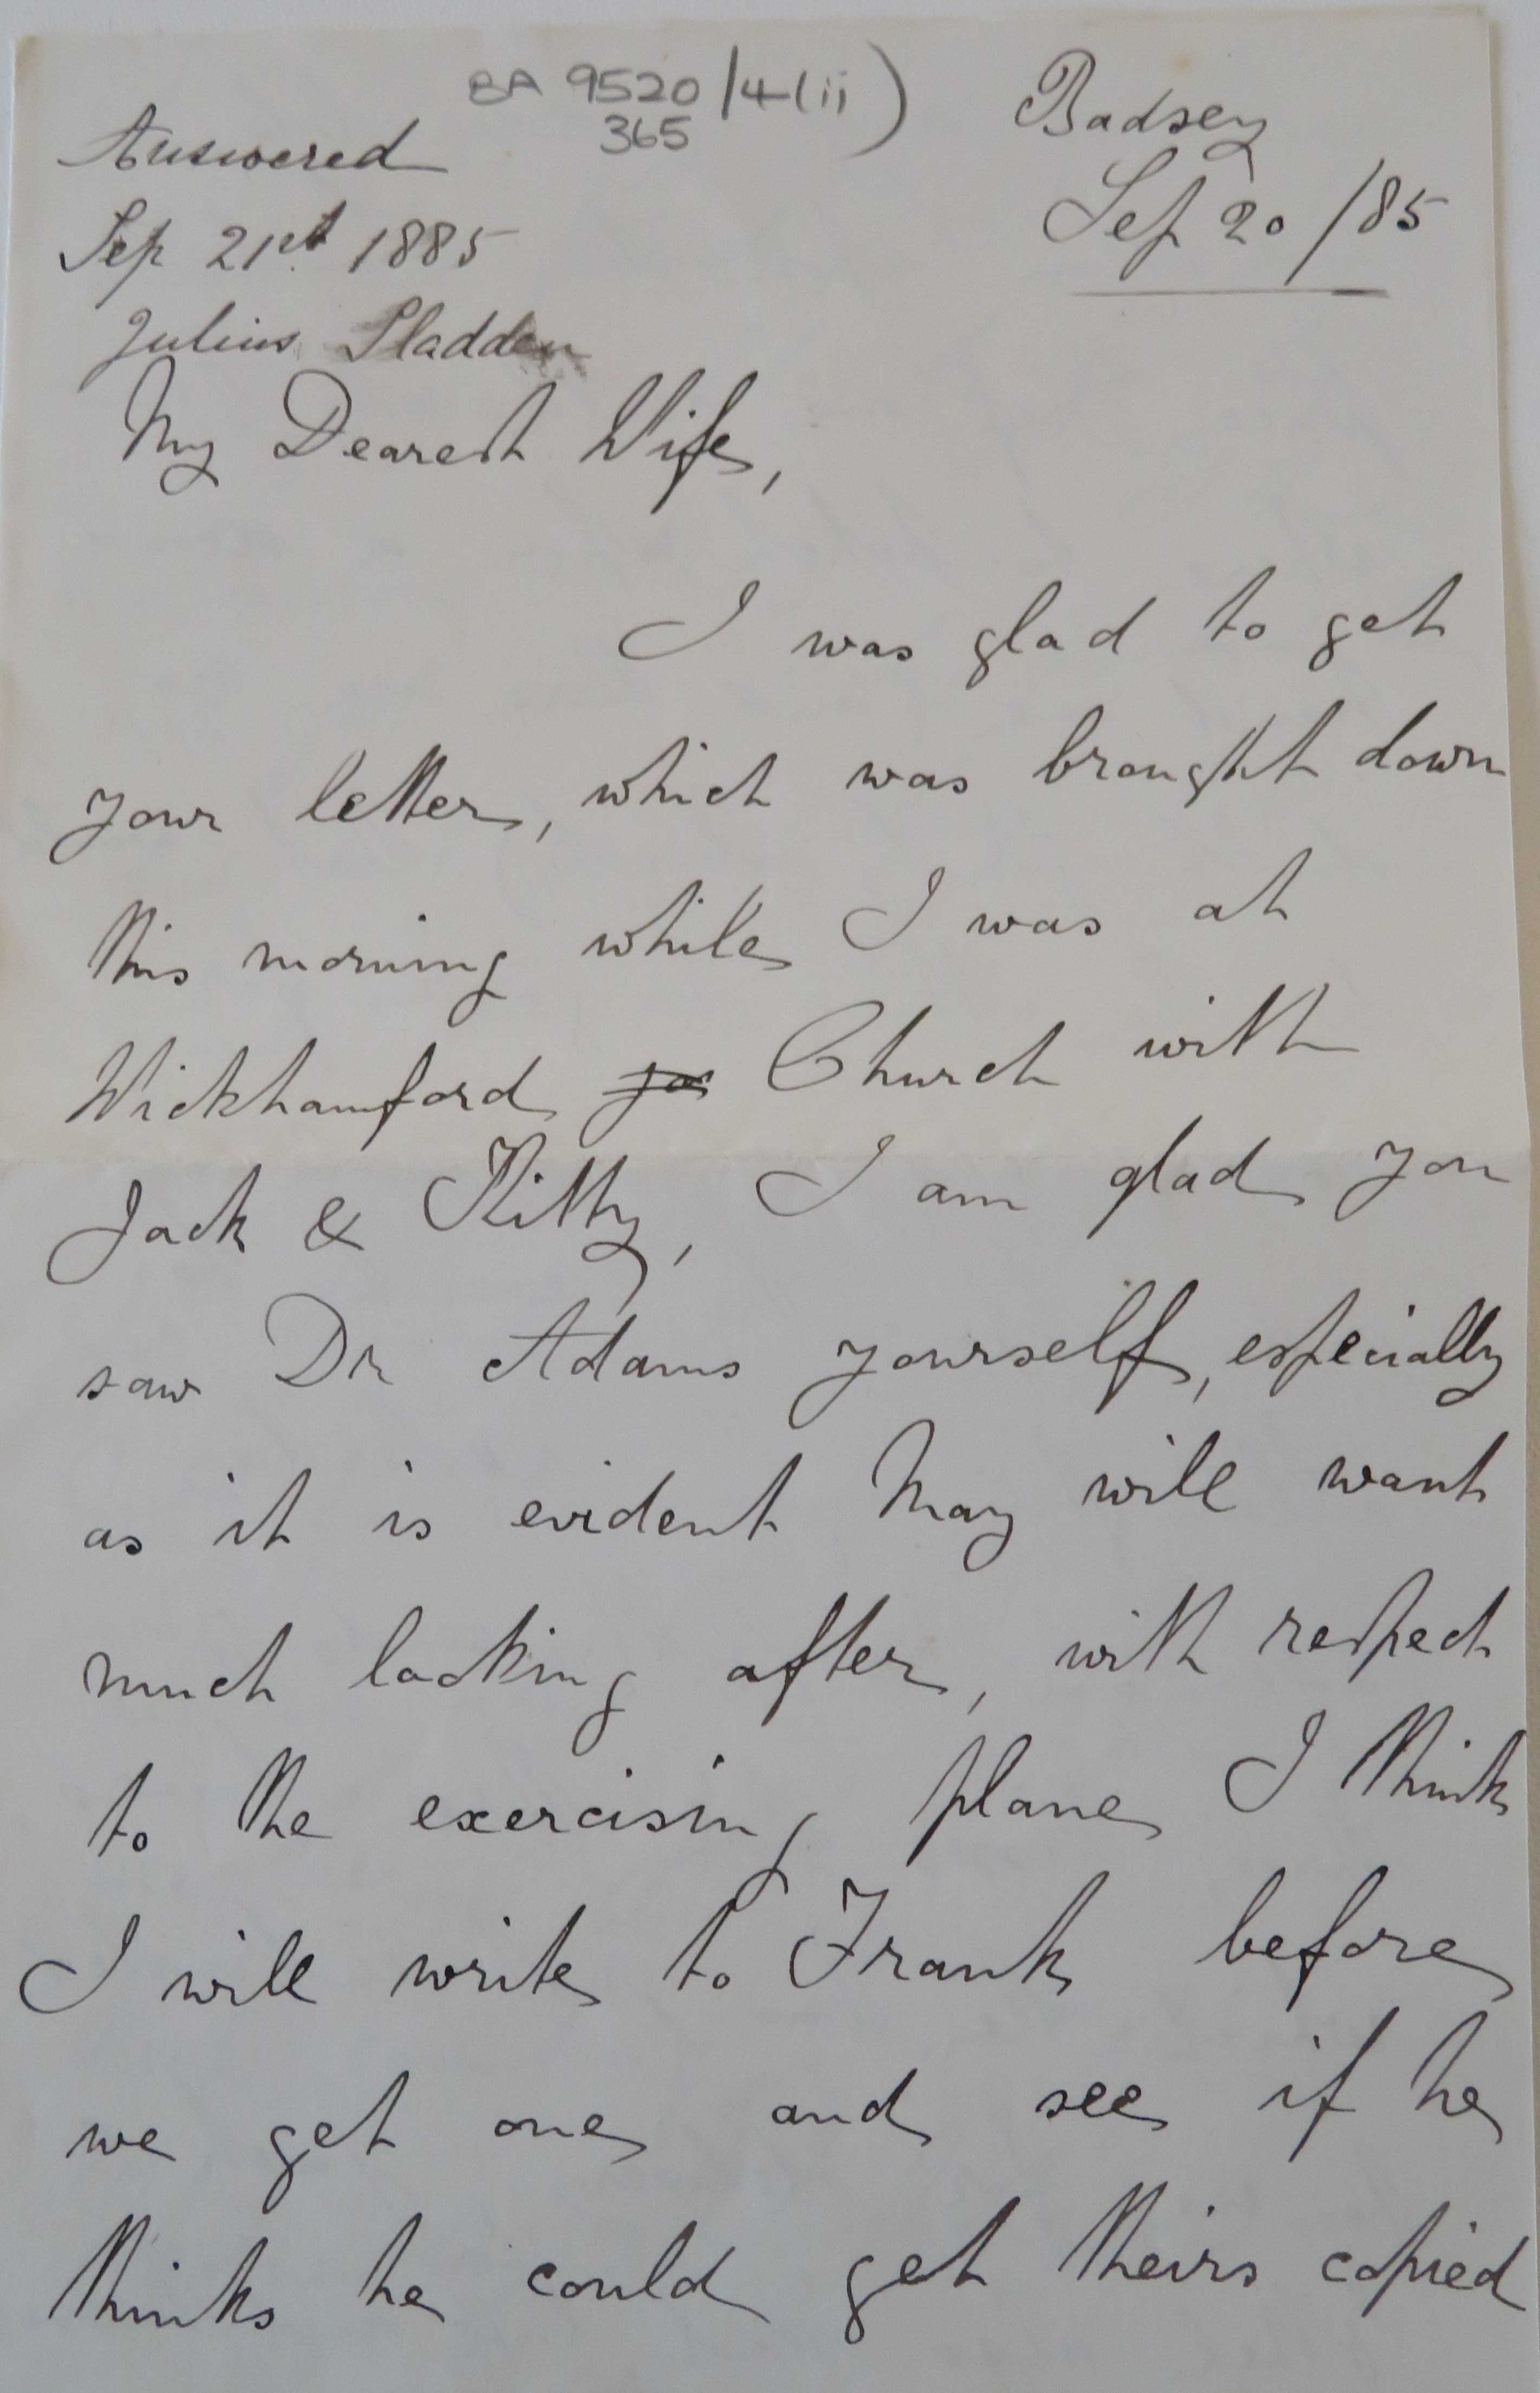 BA 9520/4(ii)
365
Badsey
Sep 20/85
Answered
Sep 21st 1885
Julius Sladden
My Dearest Wife,
I was glad to get
your letter, which was brought down
this morning while I was at
Wickhamford Church with
Jack & Kitty, I am glad you
saw Dr Adams yourself, especially
as it is evident May will want
much looking after, with respect
to the exercising plane I think
I will write to Frank before
we get one and see if he
thinks he could get theirs copied